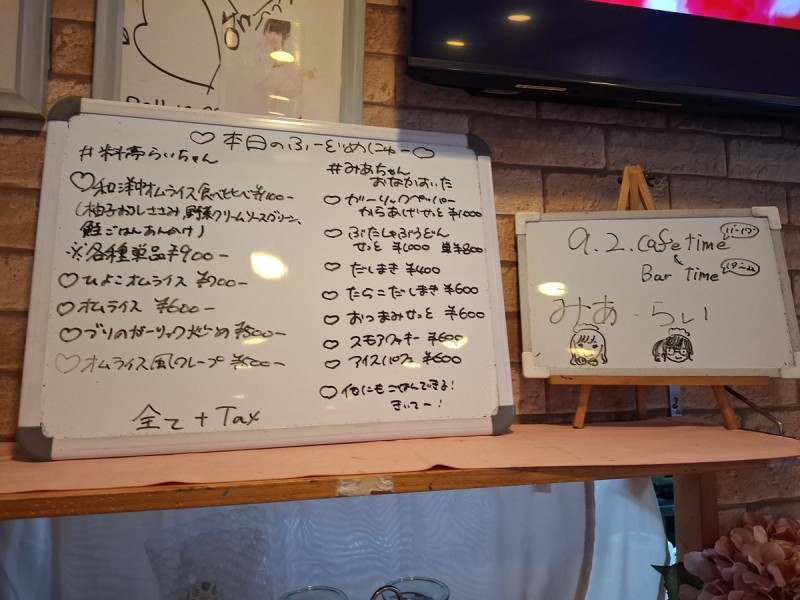 ♡本日のふーどめにゅー♡
#料亭らいちゃん
♡和洋中オムライス食べ比べ
(柚子おろしささみ、野菜クリームソースグリーン、
鮭ごはんあんかけ)
※各種単品¥900-
♡ひよこオムライス ¥700-
♡オムライス ¥600-
♡ブリのガーリック炒め¥500-
♡オムライス風クレープ
全て+Tax
#みあちゃん
おなかおいた
♡ガーリックペッパー
からあげせっと ¥1000
♡ぶたしゃぶうどん
せっと ¥1000 単¥800
♡だしまき ¥400
♡たらこだしまき ¥600
♡おつまみせっと ¥600
♡スモアクッキー ¥600
♡アイスパフェ ¥600
♡他にもごはんできるよ!
きいてー!
9.2.Cafe time
Bar time
みあ・らい